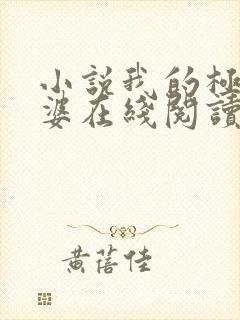 小說我的極
婆在綫閱讀
黃蓓佳